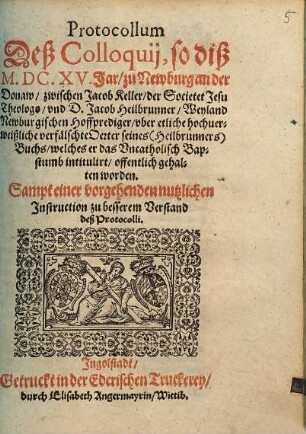 5
Protocollum
Deß Colloquij, so diß
M. DC. XV. Jar/ zu Newburg an der
Donaw/ zwischen Jacob Keller/ der Societet Jesu
Theologo/ vnd D. Jacob Heilbrunner/ Weyland
Newburgischen Hoffprediger/ vber etliche hochver-
weißliche verfälschte Oerter seines (Heilbrunners)
Buchs/ welches er das Vncatholisch Bap-
stumb intitulirt/ offentlich gehal-
ten worden.
Sampt einer vorgehenden nutzlichen
Instruction zu besserem Verstand
deß Protocolli.
Ingolstatt/
Getruckt in der Ederischen Truckerey/
durch Elisabeth Angermayrin/ Wittib.